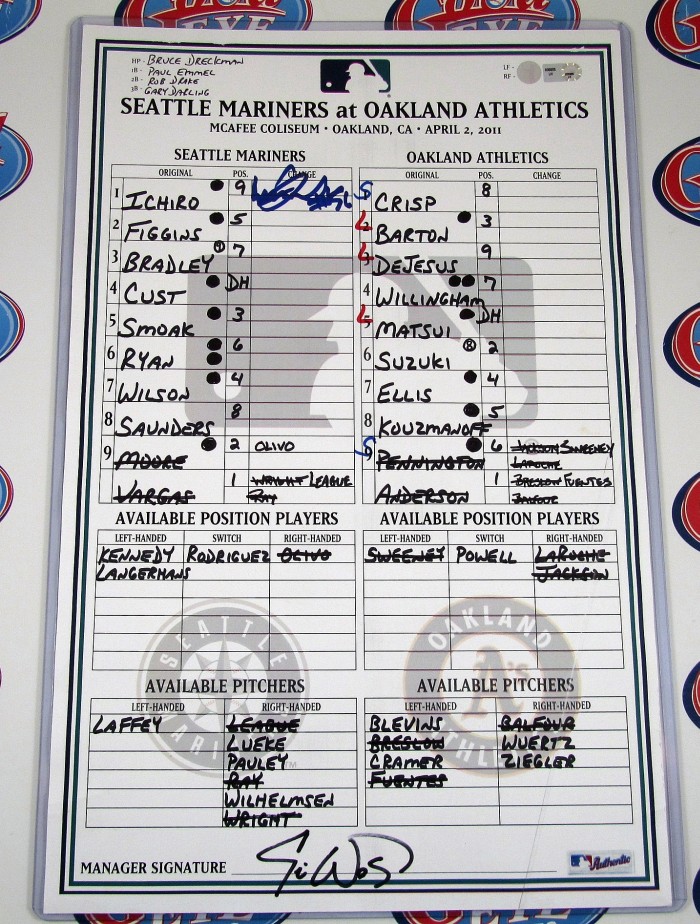 HP - BRUCE DRECKMAN
1B - PAUL EMMEL
2B - ROB DRAKE
3B - GARY DARLING
LF -
RF -
SEATTLE MARINERS at OAKLAND ATHLETICS
MCAFEE COLISEUM • OAKLAND, CA • APRIL 2, 2011
SEATTLE MARINERS
ORIGINAL POS. CHANGE
1 ICHIRO 9
2 FIGGINS 5
3 BRADLEY 7
4 CUST DH
5 SMOAK 3
6 RYAN 6
7 WILSON 4
8 SAUNDERS 8
9 MOORE 2 OLIVO
VARGAS 1 WRIGHT LEAGUE
RAY
OAKLAND ATHLETICS
ORIGINAL POS. CHANGE
S CRISP 8
L 2 BARTON 3
L 3 DEJESUS 9
4 WILLINGHAM 7
L 5 MATSUI DH
6 SUZUKI 2
7 ELLIS 4
8 KOUZMANOFF 5
S 9 PENNINGTON 6 JACKSON SWEENEY
LAROCHE
ANDERSON 1 BRESLOW FUENTES
BALFOUR
AVAILABLE POSITION PLAYERS
LEFT-HANDED SWITCH RIGHT-HANDED
KENNEDY RODRIGUEZ OLIVO
LANGERMANS
AVAILABLE POSITION PLAYERS
LEFT-HANDED SWITCH RIGHT-HANDED
SWEENEY POWELL LAROCHE
JACKSON
AVAILABLE PITCHERS
LEFT-HANDED RIGHT-HANDED
LAFFEY LEAGUE
LUEKE
PAULEY
RAY
WILHELMSEN
WRIGHT
AVAILABLE PITCHERS
LEFT-HANDED RIGHT-HANDED
BLEVINS BALFOUR
BRESLOW WUERTZ
CRAMER ZIEGLER
FUENTES
SEATTLE
OAKLAND
A's
MANAGER SIGNATURE
Authentic